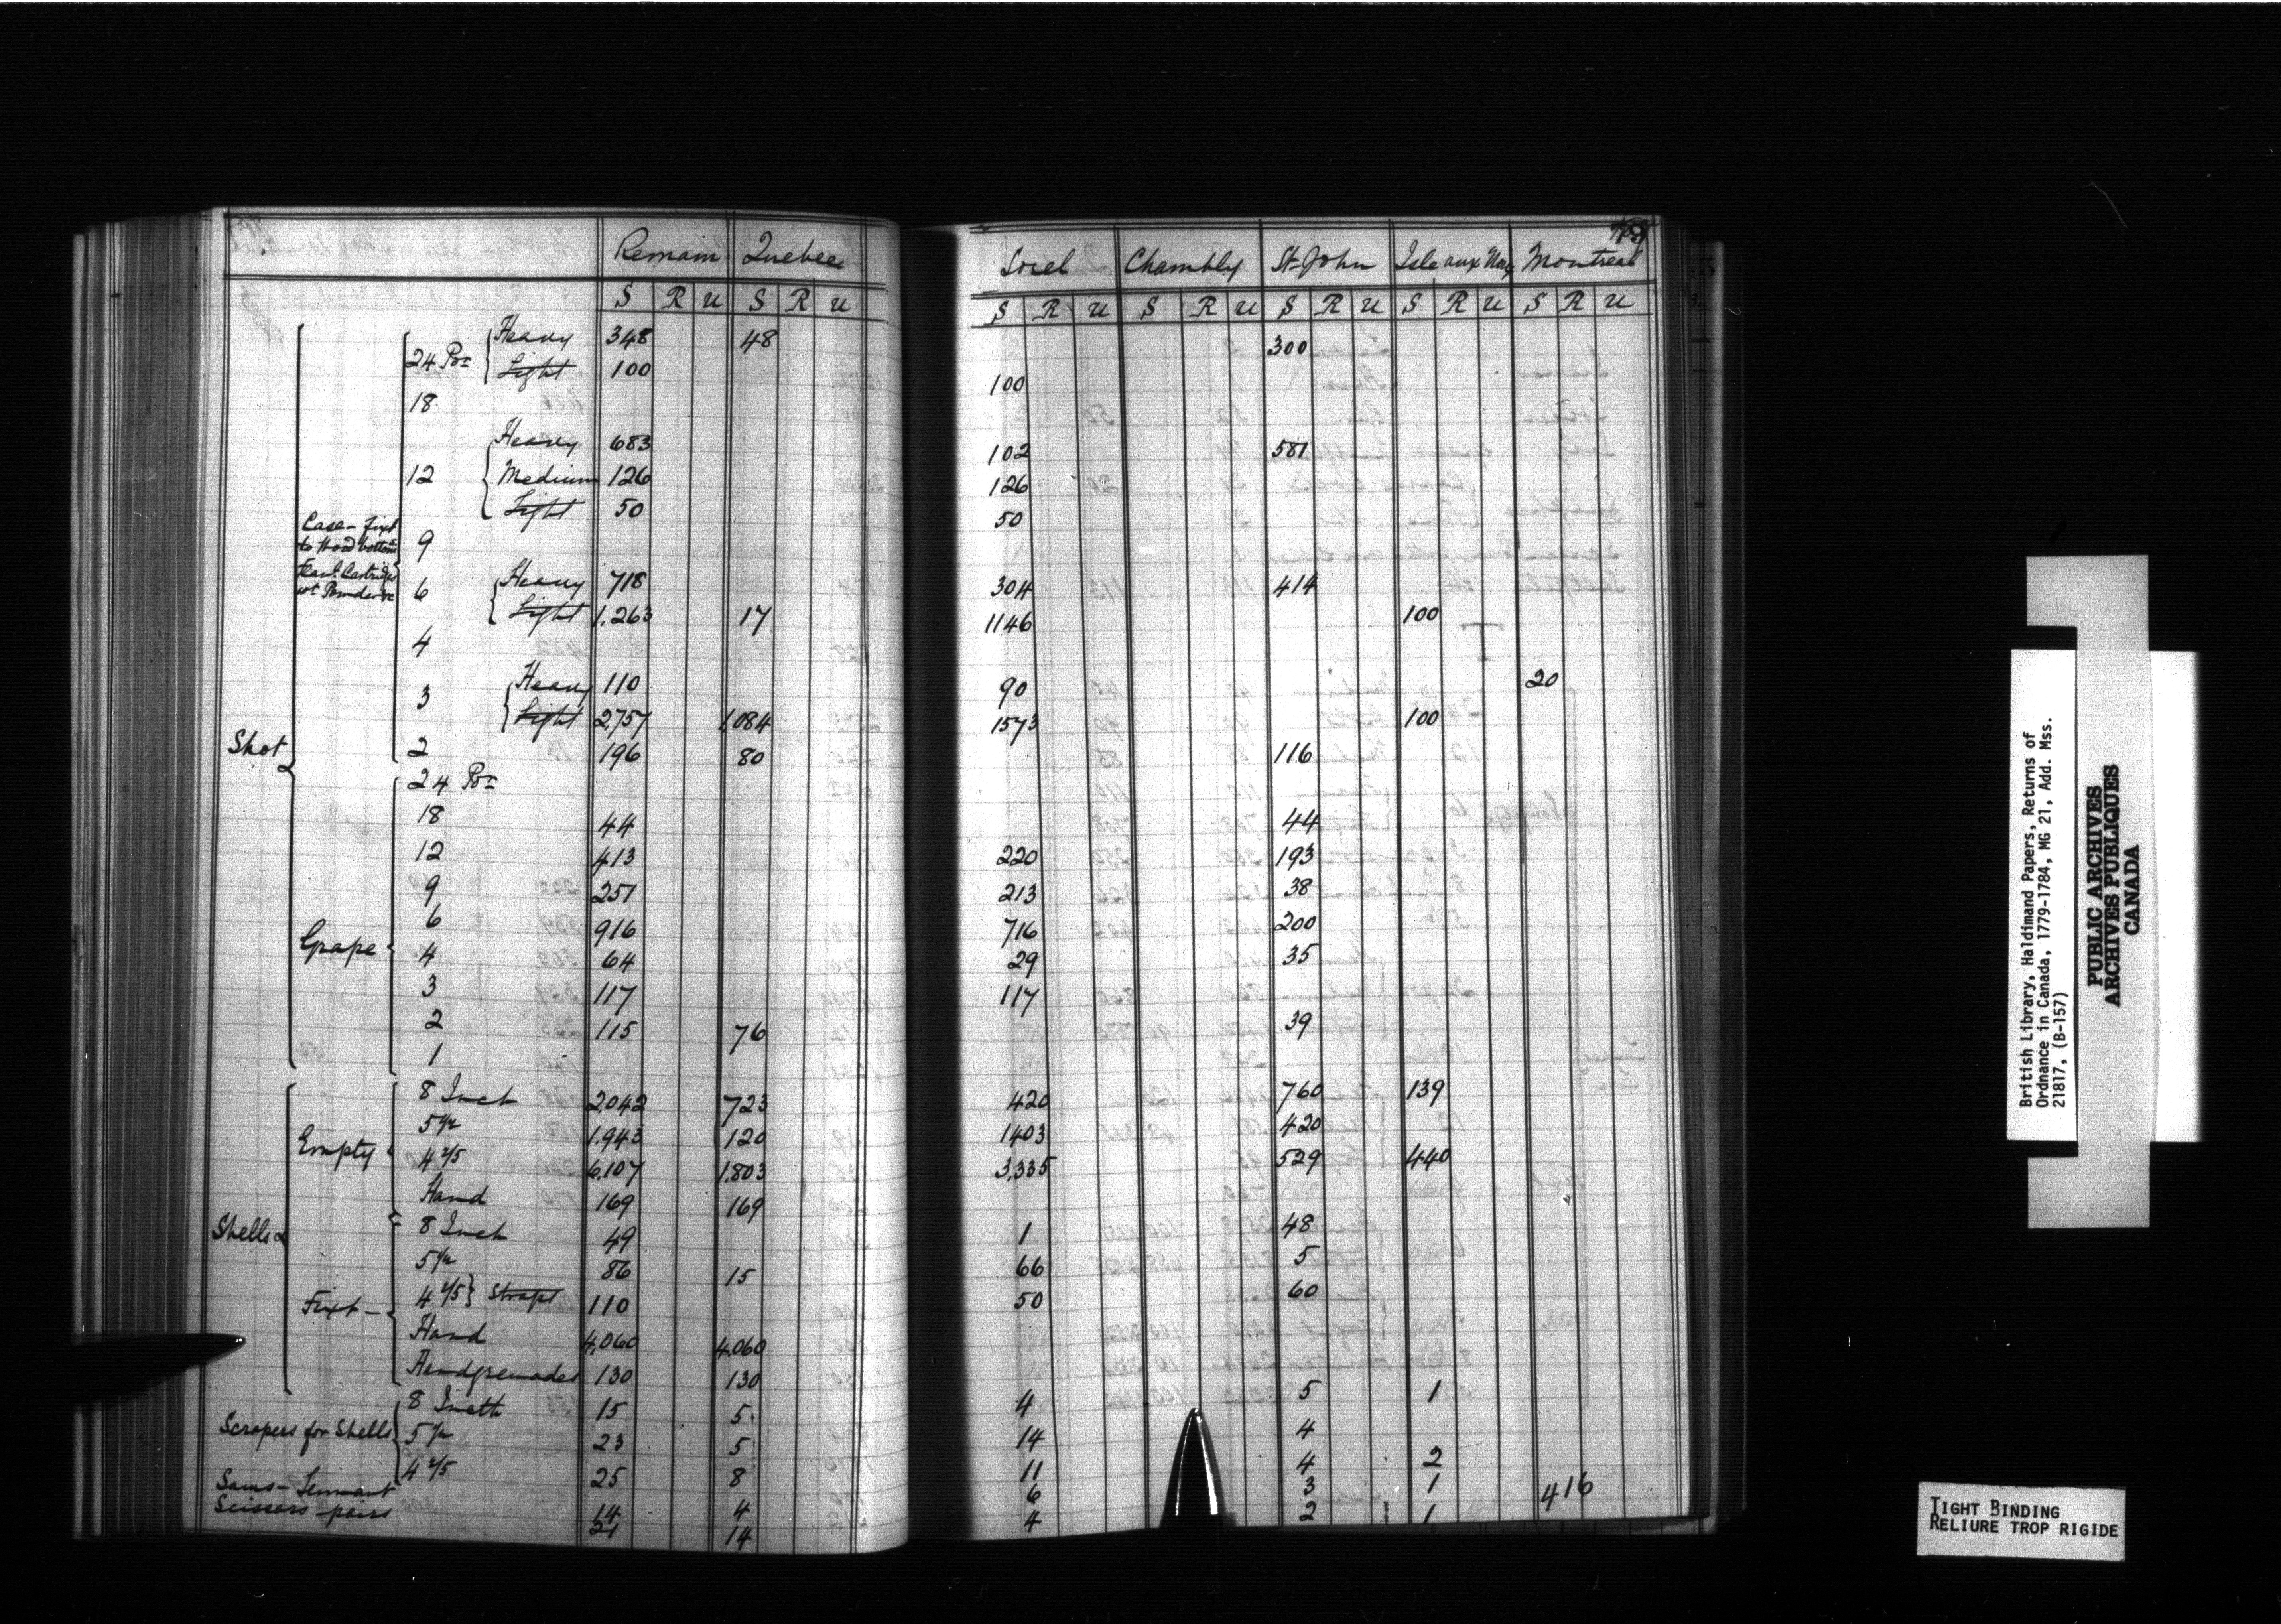 Remain Quebec Sorel Chambly St. John Isle aux Noix Montreal
S R U S R U S R U S R U S R U S R U S R U
Shot
Case - fixt
to Wood bottoms
Flanl. Cartridges
not Powder &c
24 Por. { Heavy 348 48 300
Light 100 100
18
12 { Heavy 683 102 581
Medium 126 126
Light 50 50
9
6 { Heavy 718 304 414
Light 1,263 17 1146 100
4
3 { Heavy 110 90 20
Light 2,757 1,084 1573 100
2 196 80 116
Grape
24 Por.
18 44 44
12 413 220 193
9 251 213 38
6 916 716 200
4 64 29 35
3 117 117
2 115 76 39
1
Shells
Empty
8 Inch 2,042 723 420 760 139
5½ 1,943 120 1403 420
4 2/5 6,107 1,803 3,335 529 440
Hand 169 169
Fixt -
8 Inch 49 1 48
5½ 86 15 66 5
4 2/5 } Strapt 110 50 60
Hand 4,060 4,060
Handgrenades 130 130
Scrapers for Shells
8 Inch 15 5 4 5 1
5½ 23 5 14 4
4 2/5 25 8 11 4 2
Saws - Tennant 14 4 6 3 1
Scissors pairs 21 14 4 2 1
416
British Library, Haldimand Papers, Returns of
Ordnance in Canada, 1779-1784, MG 21, Add. Mss.
21817, (B-157)
PUBLIC ARCHIVES
ARCHIVES PUBLIQUES
CANADA
TIGHT BINDING
RELIURE TROP RIGIDE